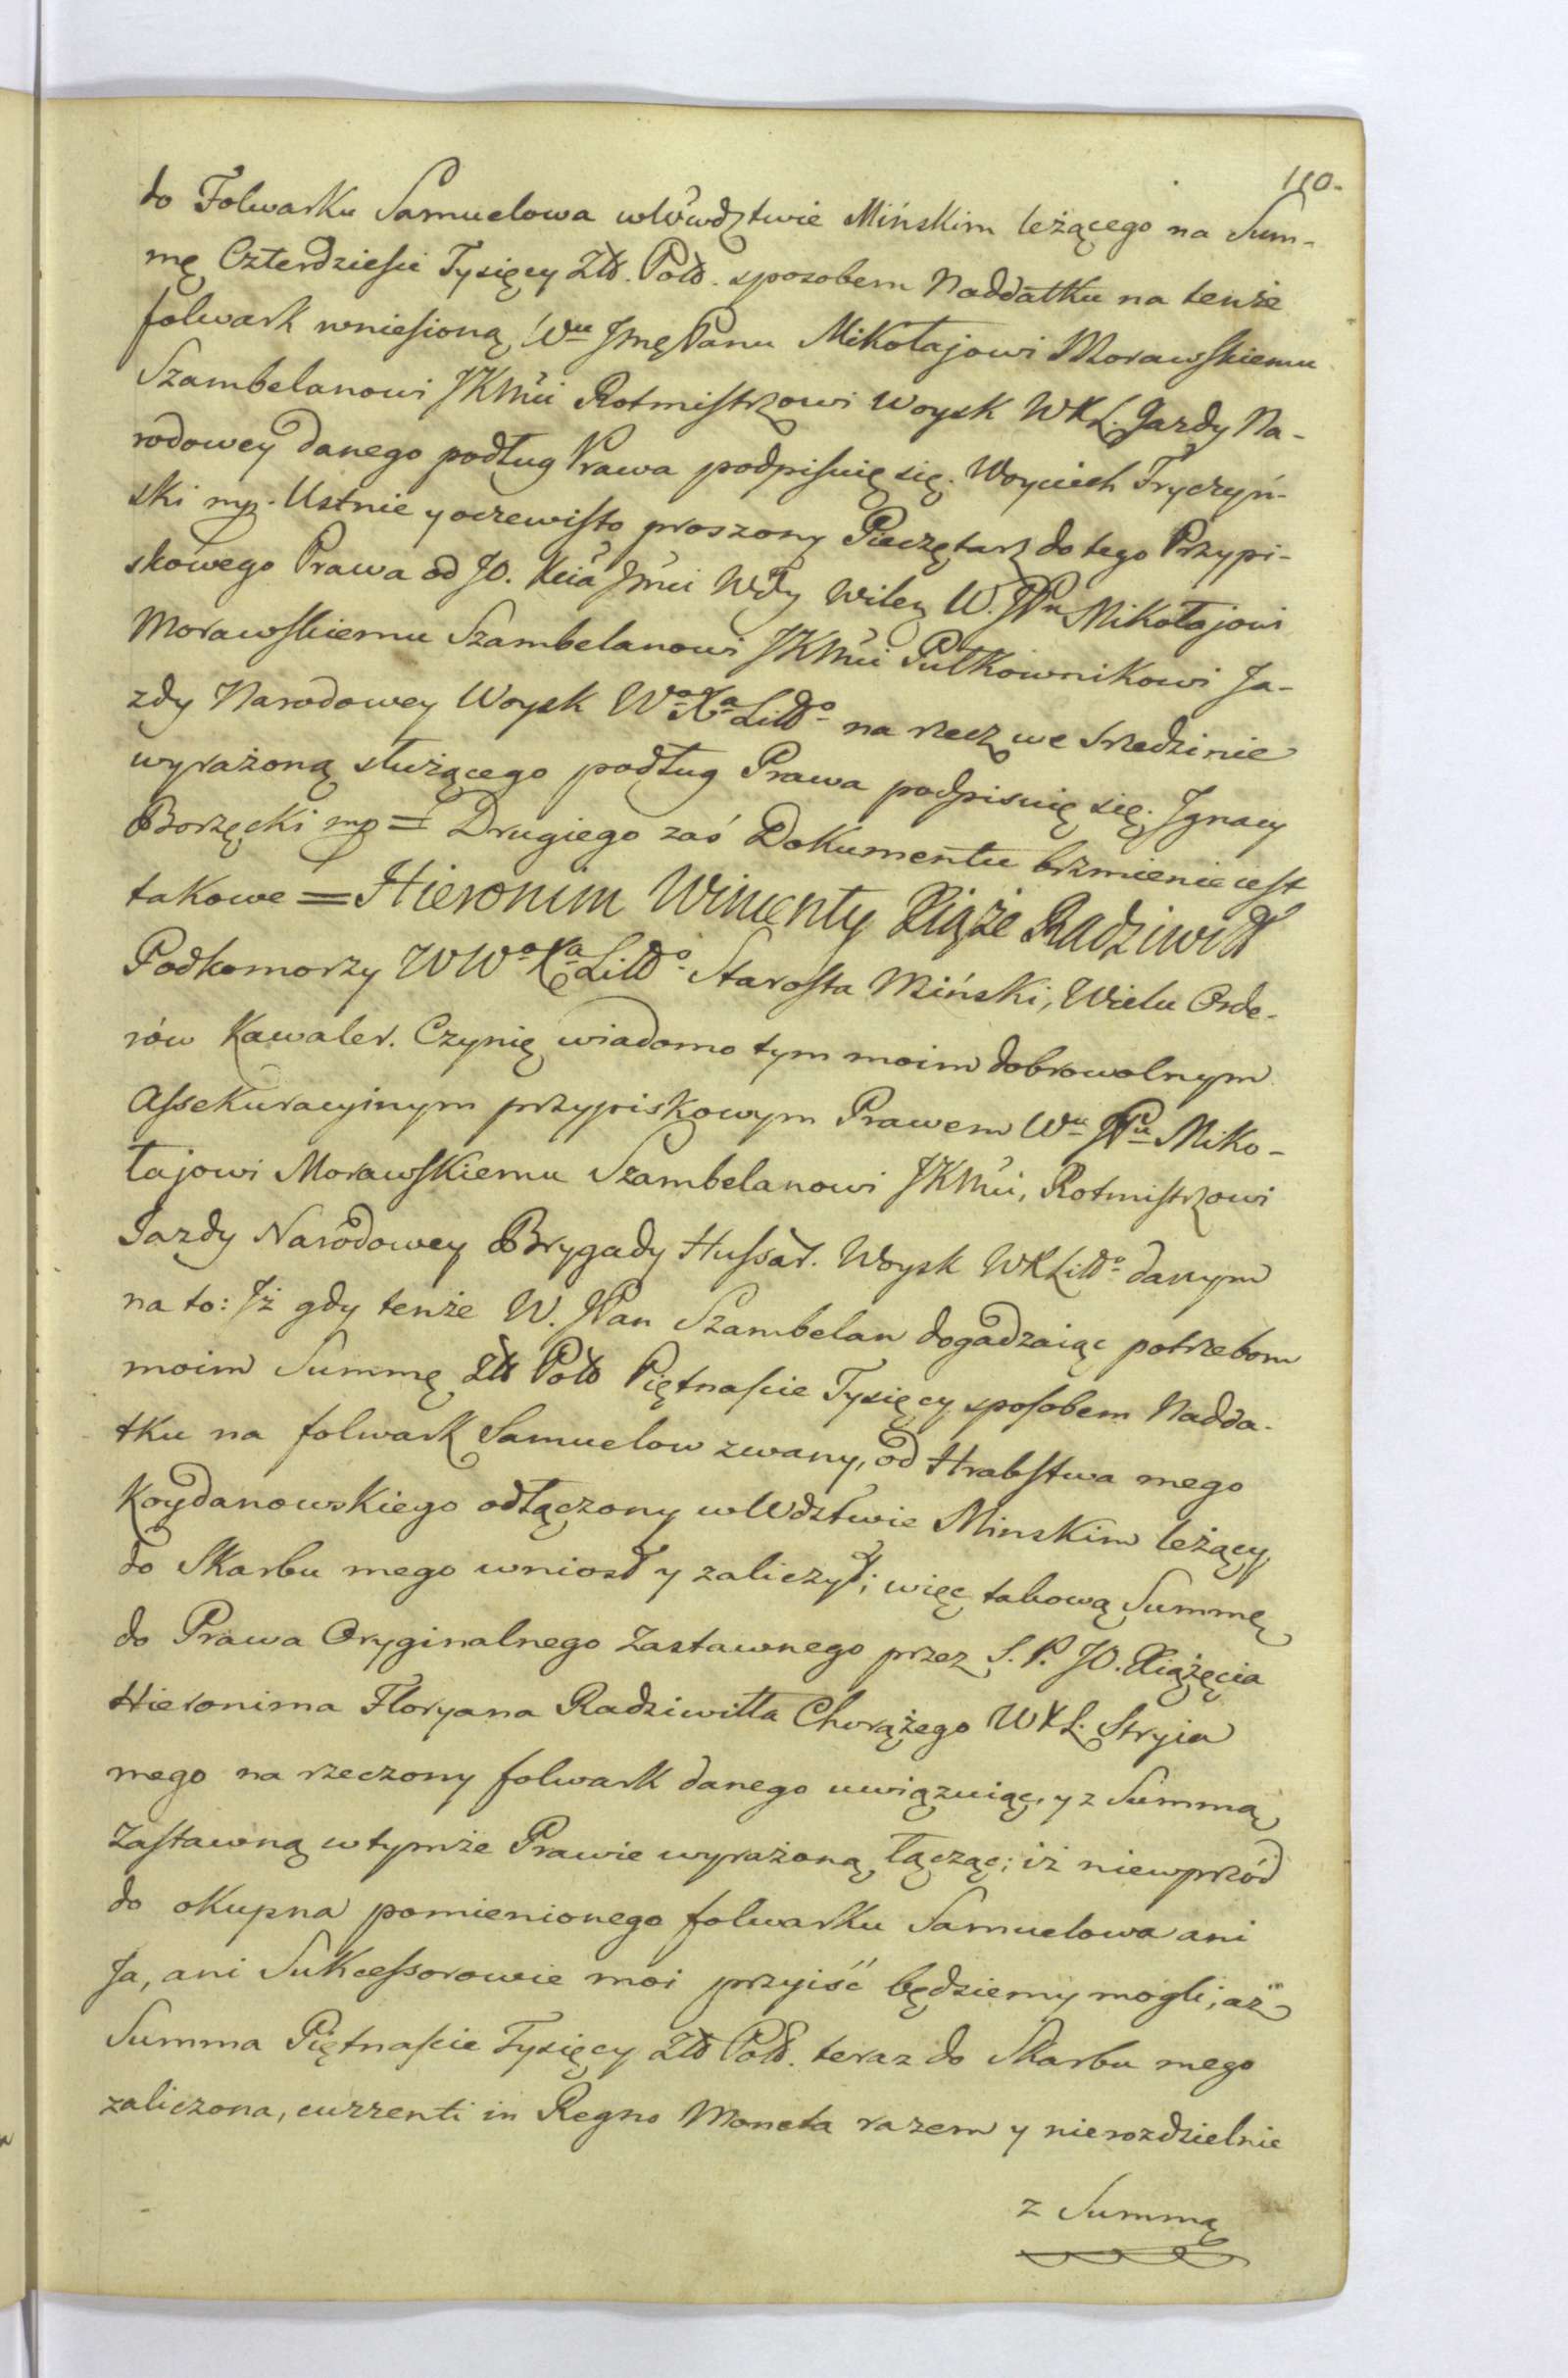 110.
do Folwarku Samuelowa wWwdztwie Mińskim leżącego na Sum-
mę Czterdzieści Tysięcy Złł. Poll. sposobem Naddatku na tenże
folwark wniesioną, Wu Jmę Panu Mikołajowi Morawskiemu
Szambelanowi JKMći Rotmistrzowi Woysk WXL. Jazdy Na-
rodowey danego podług Prawa podpisuię się. Woyciech Tryczyń-
ski mp. Ustnie y oczewisto proszony Pieczętarz do tego Przypi-
skowego Prawa od JO. Xcia Jmći Wdy Wileń W. JPu Mikołajowi
Morawskiemu Szambelanowi JKMći Pułkownikowi Ja-
zdy Narodowey Woysk Wo Xa Litto na rzecz we srzedzinie
wyrażoną służącego podług Prawa podpisuię się. Jgnacy
Borzęcki mp = Drugiego zaś Dokumentu brzmienie iest
takowe = Hieronim Wincenty Xiąże Radziwiłł
Podkomorzy WWo Xa Litto Starosta Miński, Wielu Orde-
rów Kawaler. Czynię wiadomo tym moim dobrowolnym
Assekuracyinym przypiskowym Prawem Wu JPu Miko-
łajowi Morawskiemu Szambelanowi JKMći, Rotmistrzowi
Jazdy Narodowey Brygady Hussar. Woysk WXLitto danym
na to: Jż gdy tenże W. JPan Szambelan dogadzaiąc potrzebom
moim Summę Złł Poll Piętnaście Tysięcy sposobem Nadda-
tku na folwark Samuelow zwany, od Hrabstwa mego
Koydanowskiego odłączony wWdztwie Minskim leżący,
do Skarbu mego wniosł y zaliczył; więc takową Summę
do Prawa Oryginalnego Zastawnego przez S. P. JO. Xiążęcia
Hieronima Floryana Radziwiłła Chorążego WXL. Stryia
mego na rzeczony folwark danego uwiązuiąc, y z Summą
Zastawną wtymże Prawie wyrażoną, łącząc; iż niewprzód
do okupna pomienionego folwarku Samuelowa ani
Ja, ani Sukcessorowie moi przyiść będziemy mogli; aż
Summa Piętnaście Tysięcy Złł Poll. teraz do Skarbu mego
zaliczona, currenti in Regno Moneta razem y nierozdzielnie
z Summą